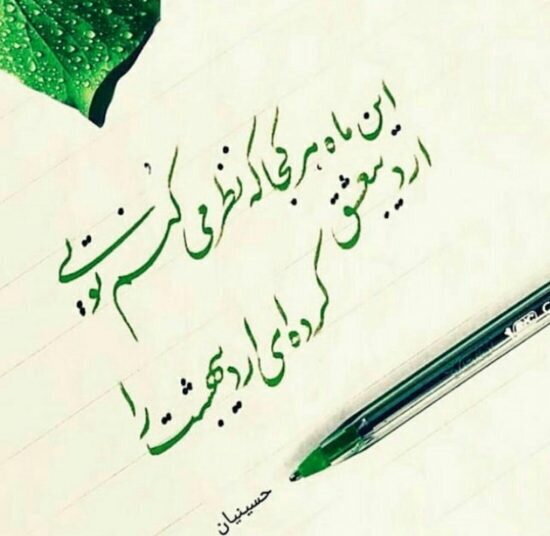 این ماه هر کجا که نظر می کنم تویی
اردیبعشق
کرده ای اردیبهشت را
حسینیان